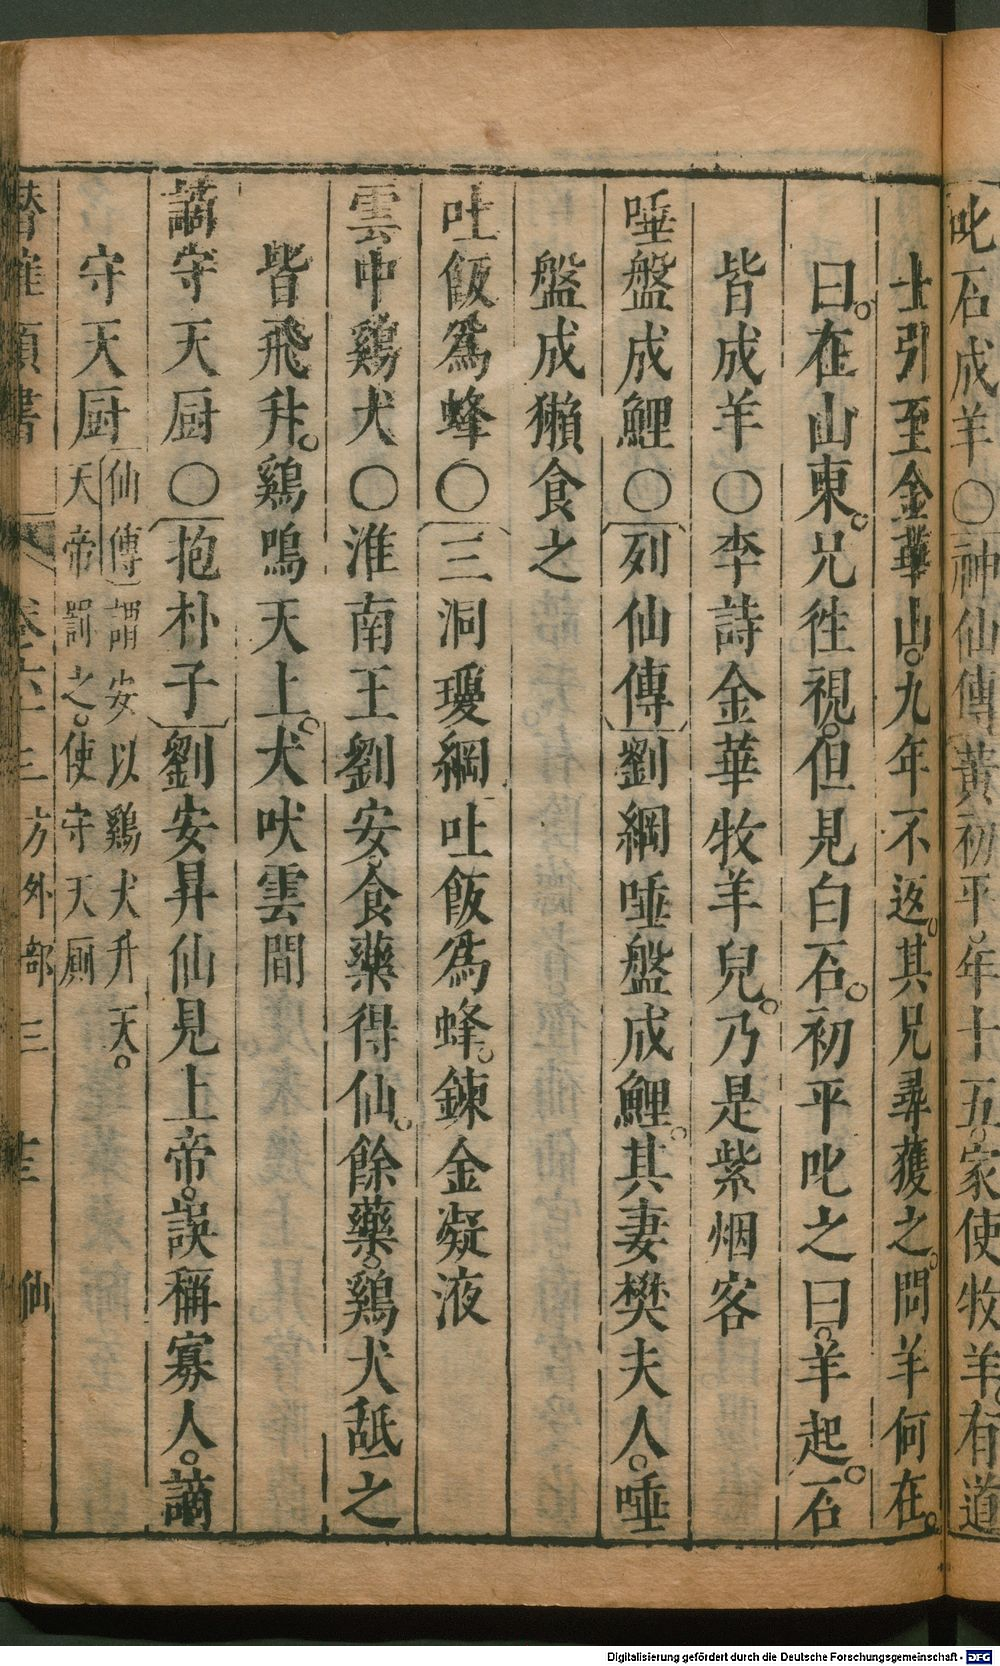 叱石成羊○〔神仙傳〕黃初平。年十五。家使牧羊。有道
士引至金華山。九年不返。其兄尋獲之。問羊何在。
曰。在山東。兄徃視。但見白石。初平叱之曰。羊起。石
皆成羊○李詩金華牧羊兒。乃是紫烟客
唾盤成鯉○〔列仙傳〕劉綱唾盤成鯉。其妻樊夫人。唾
盤成獺食之
吐飯爲蜂○〔三洞瓊綱吐飯爲蜂。鍊金凝液
雲中鷄犬○淮南王劉安。食藥得仙。餘藥。鷄犬舐之
皆飛升。鷄鳴天上。犬吠雲間
謫守天厨○〔抱朴子〕劉安昇仙見上帝。誤稱寡人。謫
守天厨〔仙傳〕謂安以鷄犬升天。
天帝罰之。使守天厠
卷六 三 方外部 三 仙
Digitalisierung gefördert durch die Deutsche Forschungsgemeinschaft - DFG